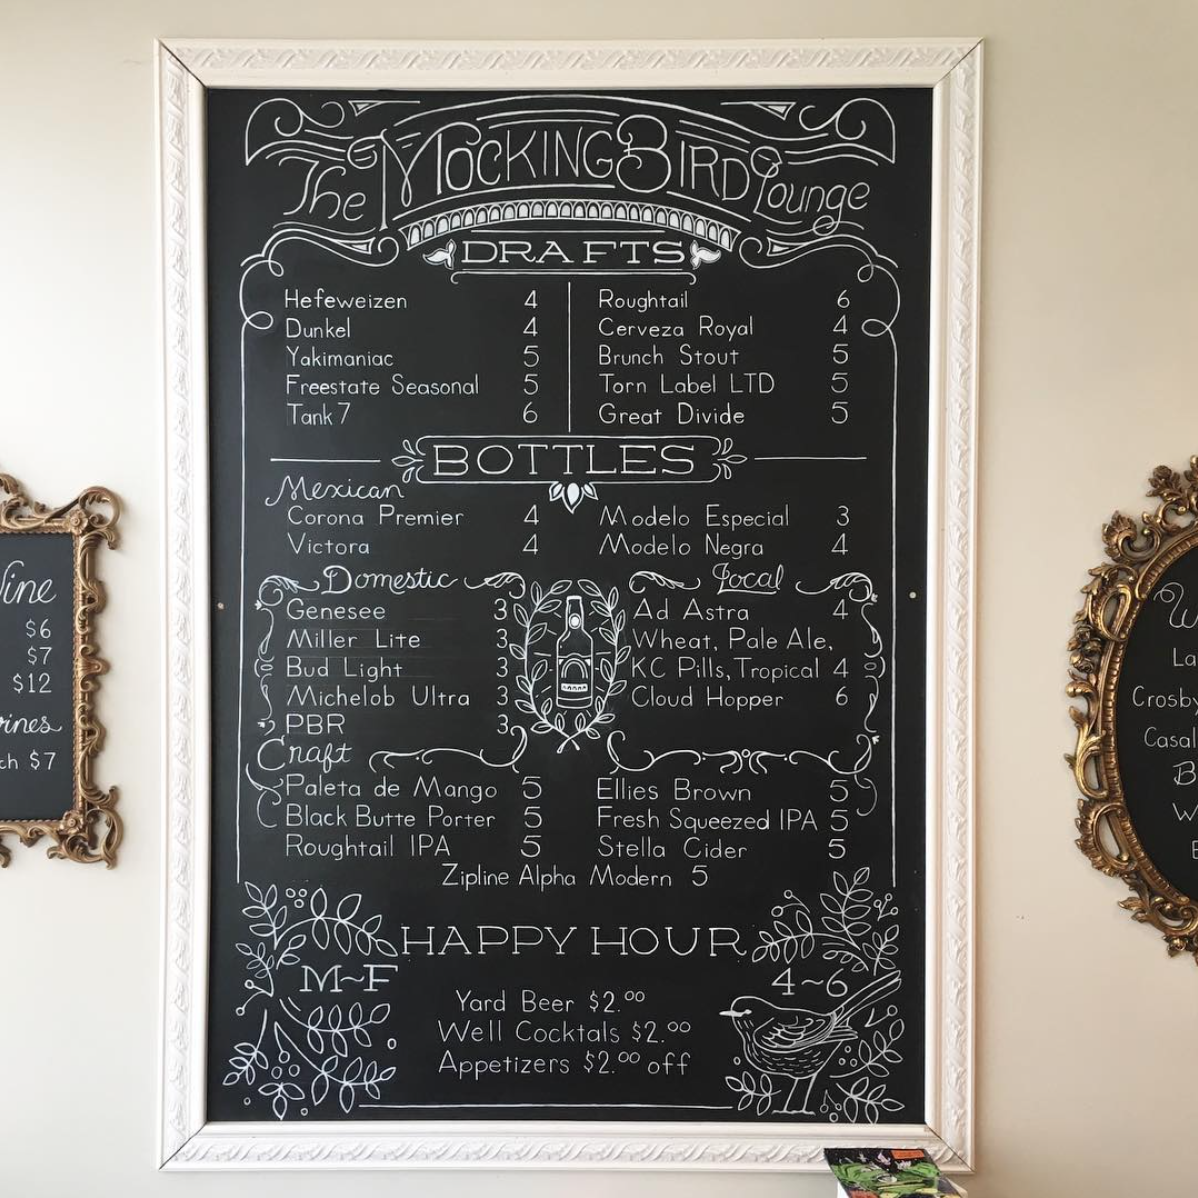 The MockingBird Lounge
DRAFTS
Hefeweizen 4
Dunkel 4
Yakimaniac 5
Freestate Seasonal 5
Tank 7 6
Roughtail 6
Cerveza Royal 4
Brunch Stout 5
Torn Label LTD 5
Great Divide 5
BOTTLES
Mexican
Corona Premier 4
Victora 4
Modelo Especial 3
Modelo Negra 4
Domestic
Genesee 3
Miller Lite 3
Bud Light 3
Michelob Ultra 3
PBR 3
Local
Ad Astra 4
Wheat, Pale Ale,
KC Pills, Tropical 4
Cloud Hopper 6
Craft
Paleta de Mango 5
Black Butte Porter 5
Roughtail IPA 5
Ellies Brown 5
Fresh Squeezed IPA 5
Stella Cider 5
Zipline Alpha Modern 5
HAPPY HOUR
M~F
4~6
Yard Beer $2.00
Well Cocktals $2.00
Appetizers $2.00 off
$6
$7
$12
$7
Crosby